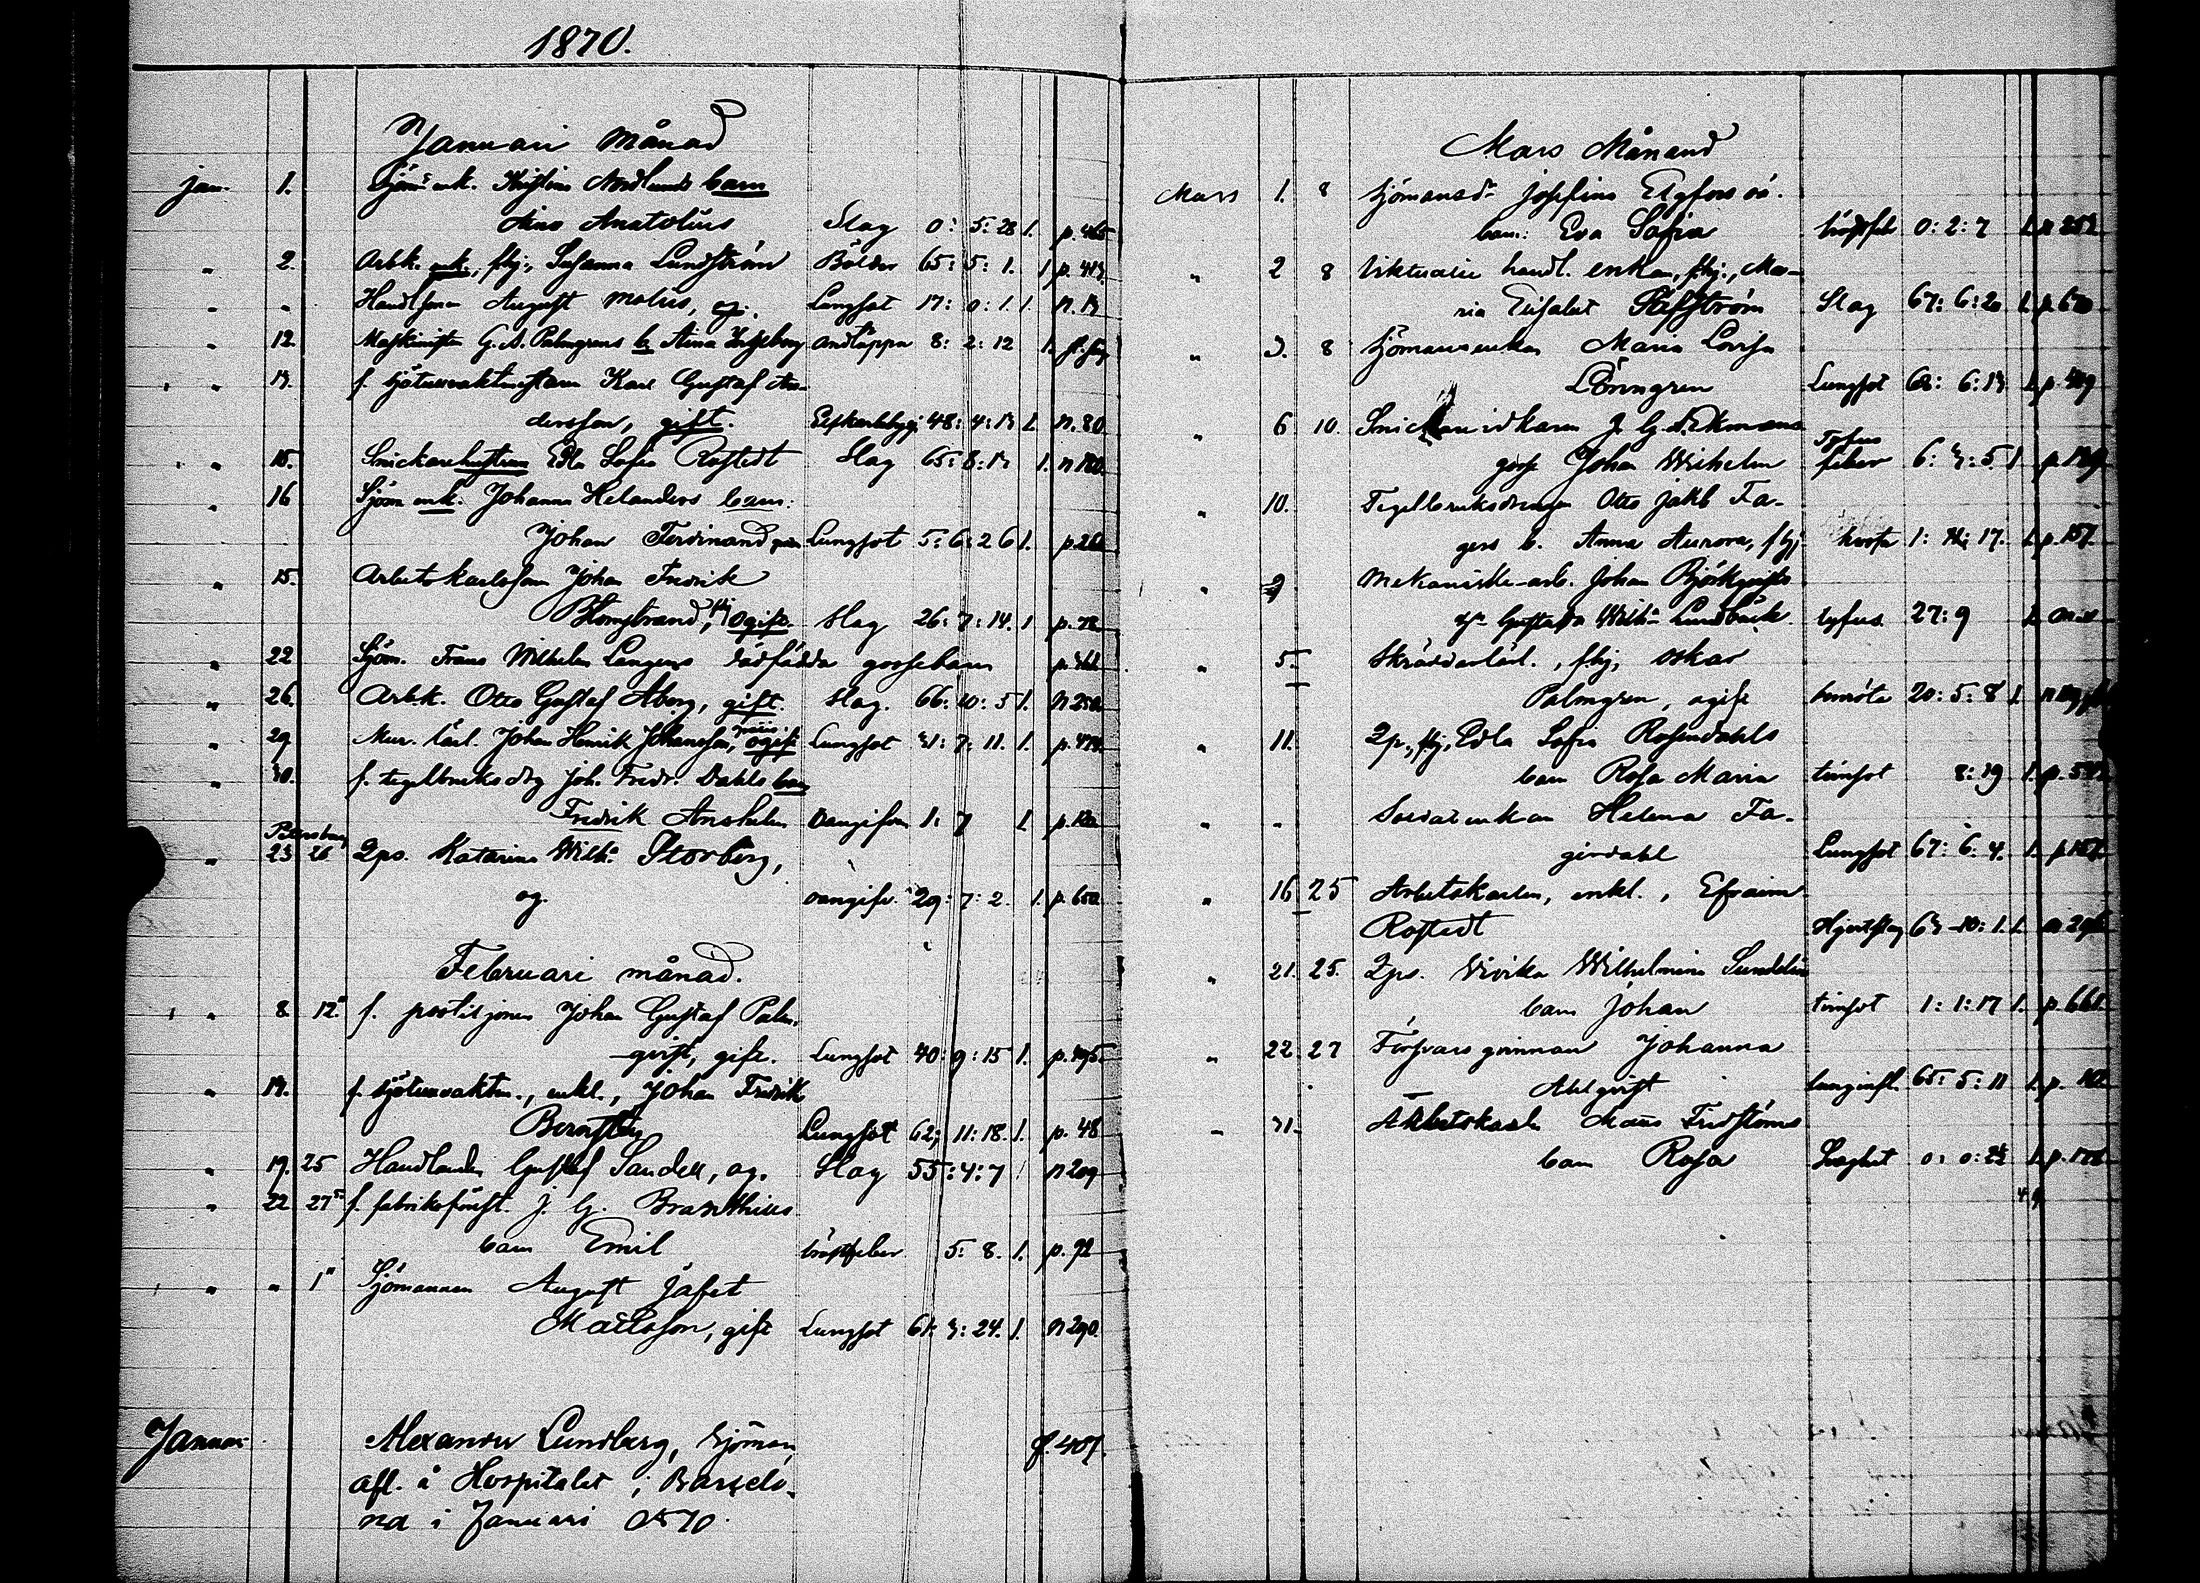 1870.
Januari Månad
jan. 1. Sjöm: enk. Kristina Nordlunds barn
Aino Anatolius Slag 0: 5: 28 1. p. 465
" 2. Arbk. enk., fhj., Susanna Lundström Bölder 65: 5: 1. 1 p. 413.
" " August Molius, og. Lungsot 17: 0: 1. 1. n. 13
" 12. Maskinisten G. A. Palmgrens b. Aina Ingeborg andtäppa 8: 2: 12 1.
" 13. f. sjötullvaktmästaren Karl Gustaf An-
dersson, gift. 48: 4: 13 1. n. 80
" 15. Snickarehustrun Edla Sofia Rostedt Slag 65: 8: 13 1. n 180
" 16 Sjöm enk. Johanna Helanders barn:
Johan Ferdinand Lungsot 5: 6: 26 1. p 261
" 15. Arbetskarlsson Johan Fredrik
Blomstrand, fhj ogift. Slag 26: 7: 14. 1 p. 72
" 22 Sjöm. Frans Wilhelm Langens dödfödda gossebarn
" 26. Arbk. Otto Gustaf Åberg, gift. Slag. 66: 10: 5 1. n 250
" 29 Mur. lärl. Johan Henrik Johansson, ogift Lungsot 31: 7: 11. 1.
" 30. f. tegelbruksdrg Joh. Fredr. Dahls barn
Fredrik Anshelm Oangifven 1: 7 1
Petersburg
" 23 26 Qps. Katarina Wilh:a Storberg,
og. oangifv. 29: 7: 2. 1. p. 650
Februari månad.
" 8 12" f. postiljonen Johan Gustaf Palm-
qvist, gift. Lungsot 40: 9: 15 1. p. 195
" 14. f. sjötullvaktm., enkl., Johan Fredrik
Lungsot 62: 11: 18. 1. p. 48
" 19. 25 Handlanden Gustaf Sandell, og. Slag 55: 4: 7 1 n 209
" 22 27" f. fabriksförest. J. G. Branthius
barn Emil bröstfeber 5: 8. 1. p. 92
" " 1" Sjömannen August Jafet
Mattsson, gift Lungsot 61: 3: 24. 1. n 290
Januari Alexander Lundberg, Sjöman, p. 407.
afl. å Hospitalet i Barcelo-
na i Januari 1870.
Mars Månand
Mars 1. 8 Sjömansd:r Josefina Elgfors oä.
barn: Eva Sofia bröstfeb 0: 2: 7 1. p 252
" 2 8 Viktualie handl. enkan, fhj., Ma-
ria Elisabet Slag 67: 6: 20 1. p. 670
" 3. 8 Sjömansenkan Maria Lovisa
Lönngren Lungsot 62: 6: 13 1. p. 409
" 6 10. Snickaridkaren J. G. A. Ekmans
gosse Johan Wilhelm Tyfus
feber 6: 3: 5. 1
" 10. Tegelbruksdrengen Otto Jakb Fa-
gers b. Anna Aurora, fhj hosta 1: 11: 17. 1. p. 157.
" 9 Mekaniske-arb. Johan Björkqvists
h:u Gustafva Wilh:a Lundbäck tyfus. 27: 9 1.
" 5. Skräddarlärl., fhj, Oskar
Palmgren, ogift 20: 5: 8 1.
" 11. Qp., fhj, Edla Sofia Rosendahls
barn Rosa Maria tvinsot 8: 19 1.
" " Soldatenkan Helena Fa-
gerdahl Lungsot 67: 6: 4. 1. p 157
" 16 25 Arbetskarlen, enkl., Efraim
Rostedt Hjertslag 63 10: 1. 1.
" 21. 25. Qps. Vivika Wilhelmina Sundelin
barn Johan tvinsot 1: 1: 17 1. p. 661
" 22 27 Försvarsqvinnan Johanna
Ahlqvist lunginfl. 65: 5: 11 1. p.
" 31. Arbetskarlen Måns Fridströms
barn Rosa Svaghet 0: 0: 22 1.